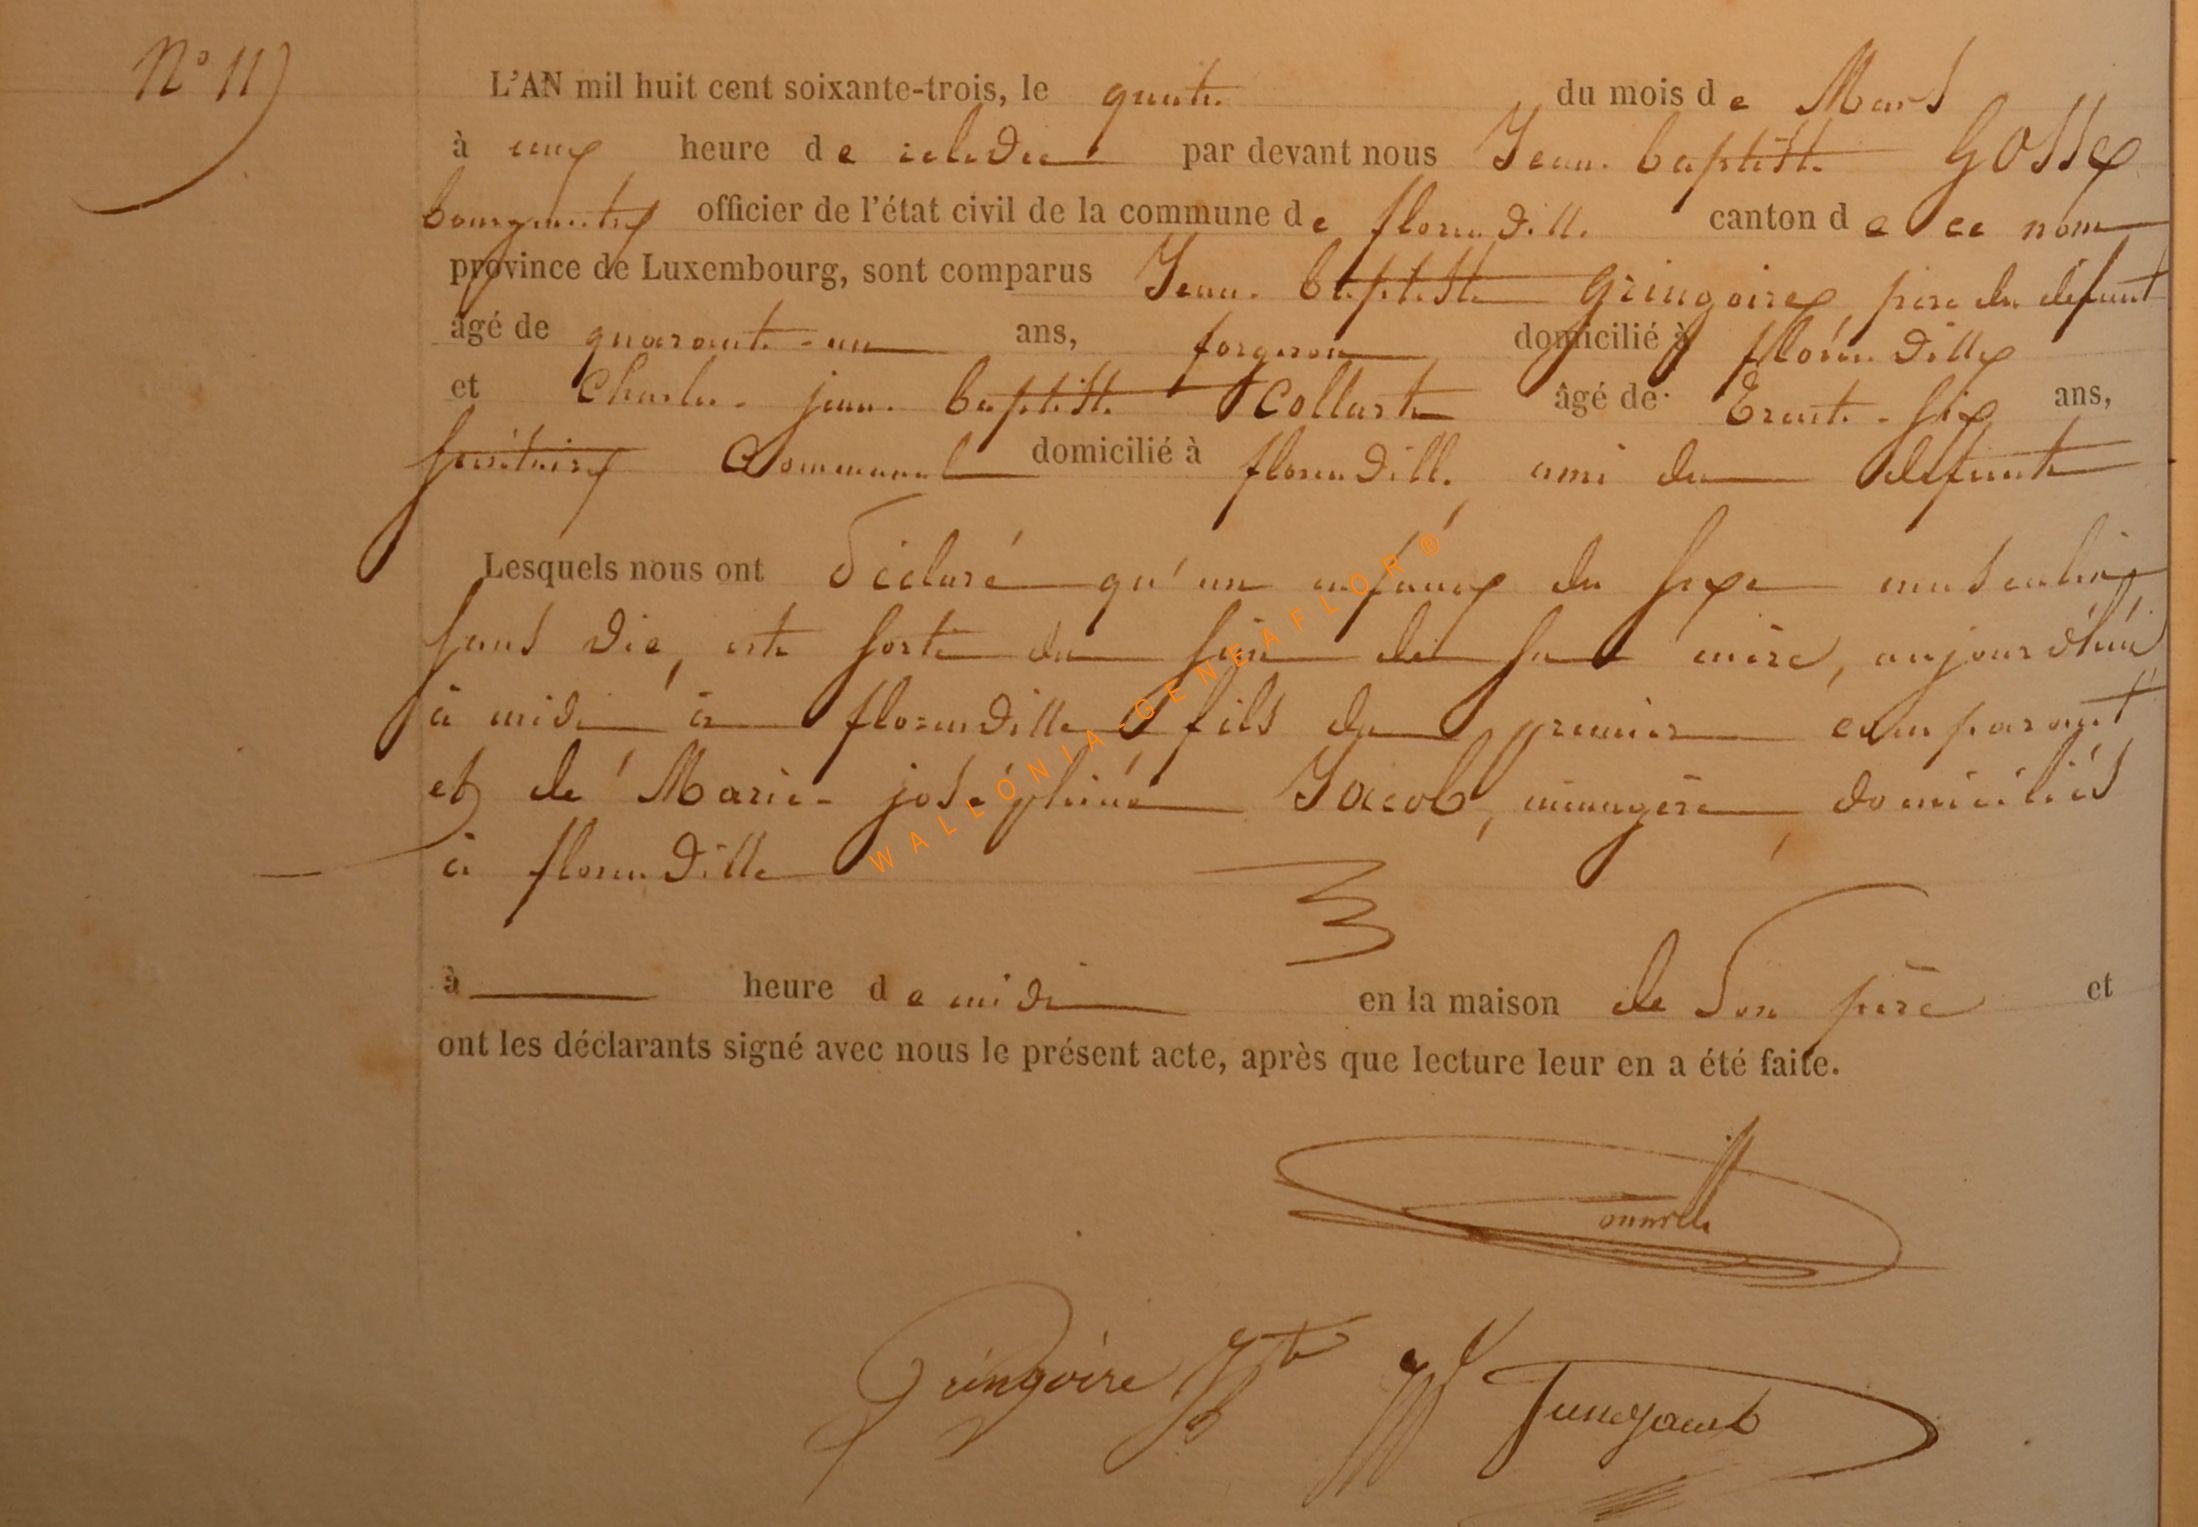 N° 11
L'AN mil huit cent soixante-trois, le quatre du mois de Mars
à une heure de relevée par devant nous Jean-baptiste Gosse
bourgmestre officier de l'état civil de la commune de florenville canton de ce nom
province de Luxembourg, sont comparus Jean-baptiste Gringoire, père du défunt
âgé de quarante-un ans, forgeron domicilié à florenville
et Charles-jean-baptiste Collart âgé de trente-six ans,
secrétaire Communal domicilié à florenville, ami du défunt
Lesquels nous ont déclaré qu'un enfant du sexe masculin,
sans vie, est sorti du sein de sa mère, aujourd'hui,
à midi à florenville fils du premier comparant
et de Marie-joséphine Jacob, ménagère, domiciliés
à florenville
à heure de midi en la maison de son père et
ont les déclarants signé avec nous le présent acte, après que lecture leur en a été faite.
Gringoire Jh bte
WALLONIA-GENEAFLOR®